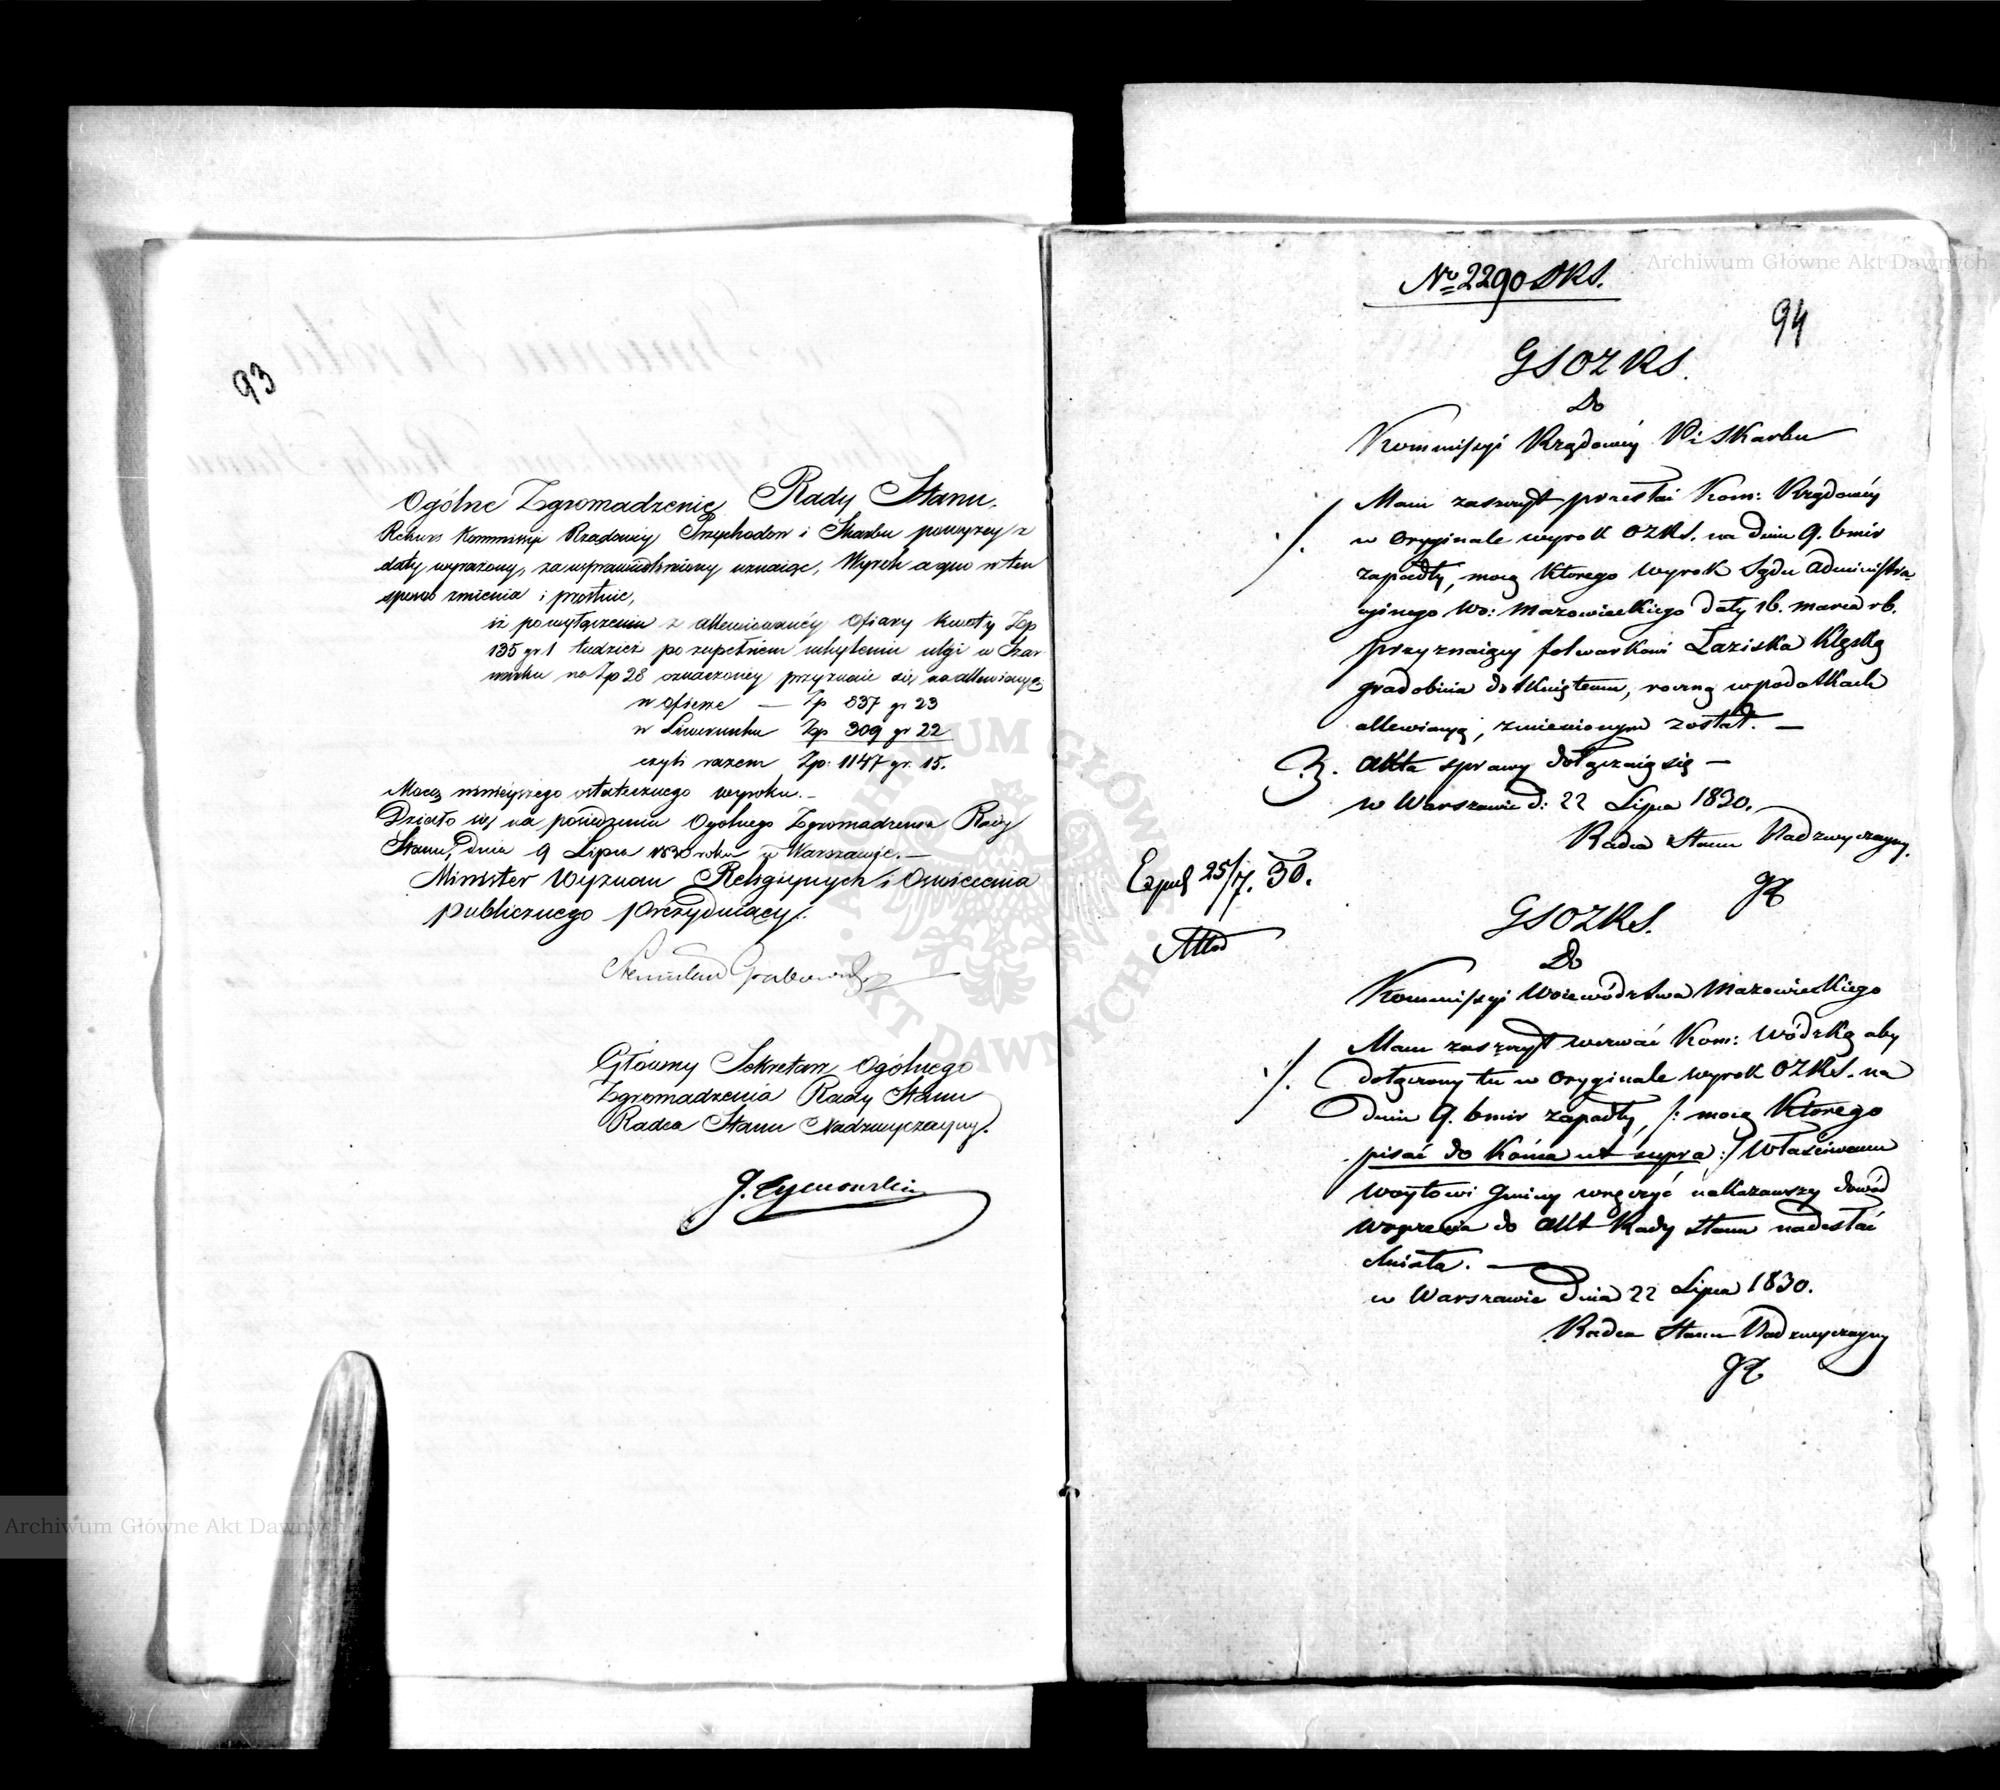 93
Ogólne Zgromadzenie Rady Stanu.
Rekurs Kommissyi Rządowey Przychodów i Skarbu powyżey z
daty wyrażony, za usprawiedliwiony uznaiąc, Wyrok a quo w ten
sposób zmienia i prostuie,
iż po wyłączeniu z allewiacyi Ofiary kwoty Zp
135 gr 1 tudzież po zupełném uchyleniu ulgi w Szar
warku na Zp 28 oznaczoney przyznaie się na allewiacyą
w ofierze — Zp 837 gr 23
w Liwerunku Zp 309 gr 22
czyli razem Zp: 1147 gr. 15.
Mocą ninieyszego ostatecznego wyroku. —
Działo się na posiedzeniu Ogólnego Zgromadzenia Rady
Stanu, dnia 9 Lipca 1830 roku w Warszawie. —
Minister Wyznań Religiynych i Oświecenia
publicznego prezyduiący:
Stanisław Grabowski
Główny Sekretarz Ogólnego
Zgromadzenia Rady Stanu
Radca Stanu Nadzwyczayny.
J. Tymowski
No 2290 SKS.
94
GSOZRS.
Do
Kommissyi Rządowéy Pi Skarbu
Mam zaszczyt przesłać Kom: Rządowéy
w oryginale wyrok OZRS. na dniu 9. bmir
zapadły, mocą którego wyrok Sądu Administra
cyjnego Wo: Mazowieckiego daty 16. marca rb.
przyznaiący folwarkowi Łaziska klęską
gradobicia dotkniętemu, roczną w podatkach
allewiacyą, zmienionym został. —
3. Akta sprawy dołączaią się —
w Warszawie d: 22 Lipca 1830.
Radca Stanu Nadzwyczayny.
Exped 25/7. 30.
GSOZRS.
Do
Kommissyi Województwa Mazowieckiego
Mam zaszczyt wezwać Kom: Wódzką aby
dołączony tu w oryginale wyrok OZRS. na
dniu 9. bmir zapadły, /: mocą którego
pisać do końca ut supra :/ właściwemu
woytowi Gminy wręczyć nakazawszy dowód
wręczenia do Akt Rady Stanu nadesłać
chciała. —
w Warszawie dnia 22 Lipca 1830.
Radca Stanu Nadzwyczayny
Archiwum Główne Akt Dawnych
Archiwum Główne Akt Dawnych
ARCHIWUM GŁÓWNE AKT DAWNYCH